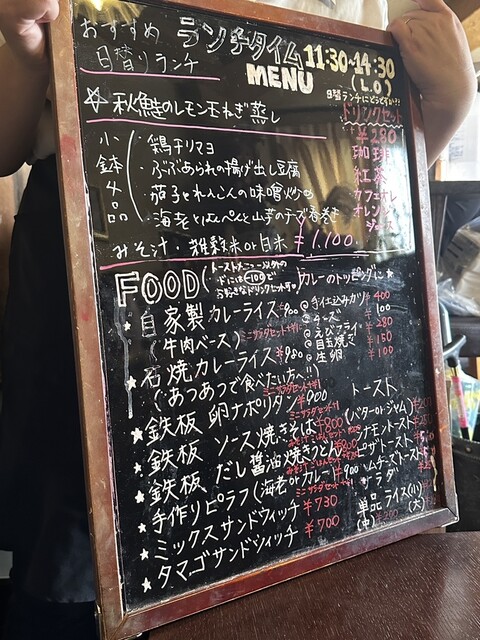 おすすめ ランチタイム 11:30~14:30
日替りランチ MENU (L.O)
日替ランチにどうですか?!
☆秋鮭のレモン玉ねぎ蒸し
ドリンクセット
+¥280
珈琲
紅茶
カフェオレ
オレンジ
ジュース
小鉢4品
・鶏手リマヨ
・ぶぶあられの揚げ出し豆腐
・茄子とれんこんの味噌炒め
・海老とはんぺんと山芋のチーズ春巻き
みそ汁・雑穀米or白米 ¥1,100.
FOOD
トーストメニュー以外の
フードには -100で
お好きなドリンクセット可
カレーのトッピングに★
自家製カレーライス ¥900
(牛肉ベース) ミニサラダセット
@手仕込みカツ 400
@チーズ 100
@えびフライ 280
@目玉焼き 150
@生卵 100
★石焼カレーライス ¥980
(あつあつで食べたい方へ!!)
ミニサラダセット
★鉄板 卵ナポリタン ¥900
ミニサラダセット
★鉄板 ソース焼きそば ¥800
★鉄板 だし醤油焼きうどん ¥800
★手作りピラフ(海老orカレー) ¥900
ミニサラダセット
★ミックスサンドウィッチ ¥730
★タマゴサンドウィッチ ¥700
トースト
(バターorジャム)
シナモントースト
ピザトースト
ハムチーズトースト
サラダ
単品ライス(小)
(中) ¥200 (大)